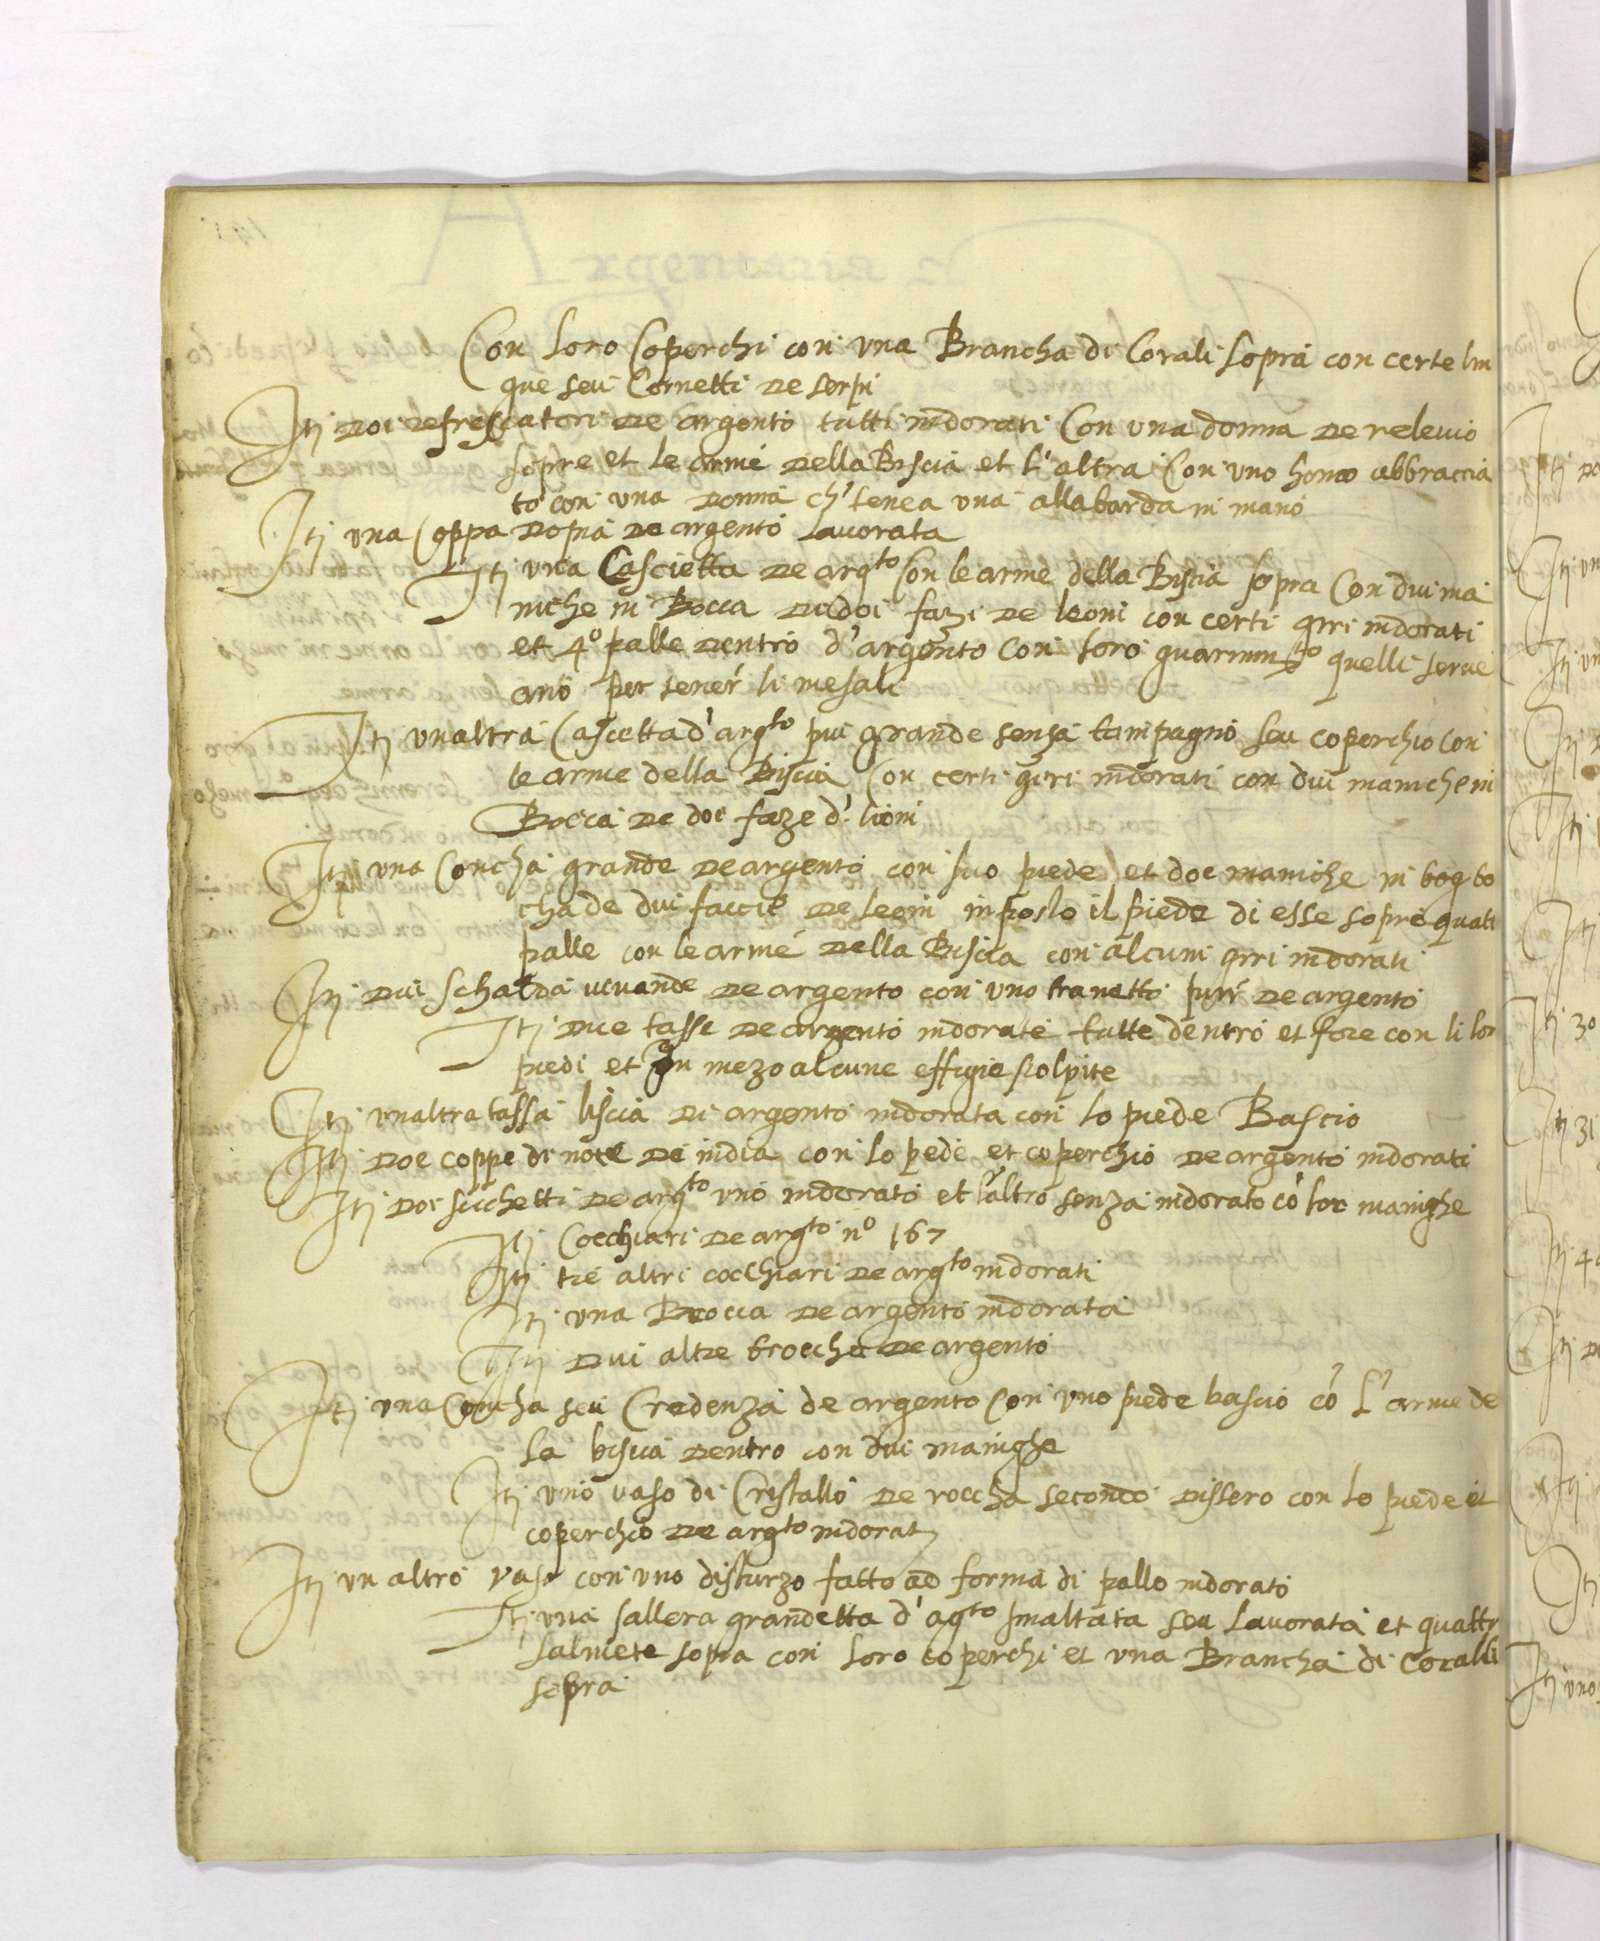 Con loro Coperchi con una Brancha di Corali sopra con certe lin
gue seu Cornetti de serpi
Itj doi refrescatori de argento tutti indorati Con una donna de relevio
sopre et le arme della Biscia et l'altra Con uno homo abbraccia
to con una donna ch' tenea una allabarda in mano
Itj una Coppa dopia de argento lavorata
Itj una Cascietta de argto Con le arme della Biscia sopra Con dui ma
niche in Bocca de doi fazi de leoni con certi giri indorati
et 4o palle dentro d'argento con loro guarnimto quelli serve
ano per tener li mesali
Itj unaltra Cascetta d'argto piu grande senza tampagno seu coperchio con
le arme della Biscia Con certi giri indorati con dui maniche in
Bocca de doe faze d' lioni
Itj una Concha grande de argento con suo piede et doe maniche in
cha de dui faccie de leoni in posto il piede di esse sopre quat
palle con le arme della Biscia con alcuni giri indorati
Itj dui schalda vivande de argento con uno pur de argento
Itj dice tasse de argento indorate tutte dentro et fore con li lor
piedi et in mezo alcune effigie scolpite
Itj unaltra tassa liscia di argento indorata con lo piede Bascio
Itj doe coppe di noce de india con lo pede et coperchio de argento indorati
Itj doi sicchetti de argto uno indorato et l'altro senza indorato co' loro manighe
Itj Cocchiari de argto no 167
Itj tre altri cocchiari de argto indorati
Itj una Brocca de argento indorata
Itj dui altre brocche de argento
Itj una Concha seu Credenza de argento Con uno piede bascio co' l'arme de
la biscia dentro con dui manighe
Itj uno vaso di Cristallo de roccha secondo dissero con lo piede et
coperchio de argto indorat
Itj un altro vaso con uno fatto ad forma di pallo indorato
Itj una sallera grandetta d'agto smaltata seu lavorata et quattr
salniete sopra con loro coperchi et una Brancha di Coralli
sopra